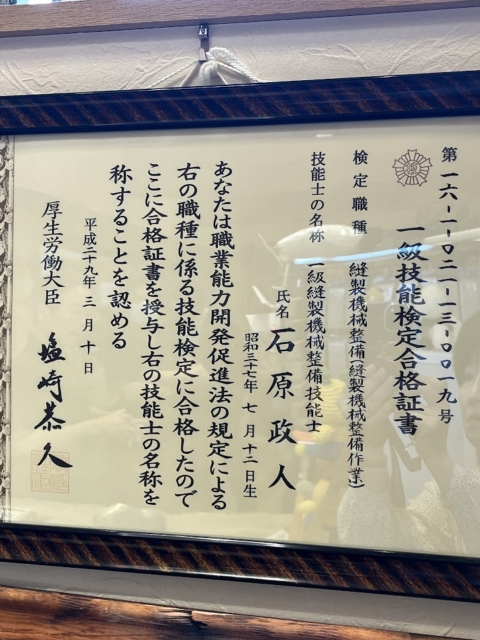 第一六-一-〇二一-一三-〇〇一九号
一級技能検定合格証書
検定職種 縫製機械整備(縫製機械整備作業)
技能士の名称 一級縫製機械整備技能士
氏名 石原政人
昭和三十七年 七月十二日生
あなたは職業能力開発促進法の規定による
右の職種に係る技能検定に合格したので
ここに合格証書を授与し右の技能士の名称を
称することを認める
平成二十九年三月十日
厚生労働大臣 塩崎恭久